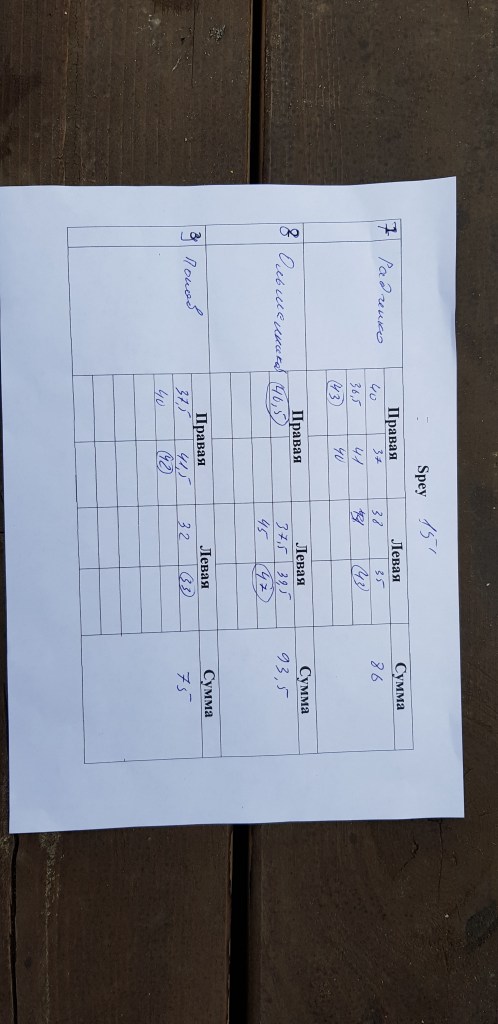 Spey 15'
Правая Левая Сумма
7 Радченко 40 37 38 35 86
36,5 41 43
43 40
Правая Левая Сумма
8 46,5 37,5 39,5 93,5
45 47
Правая Левая Сумма
3 Попов 37,5 41,5 32 33 75
40 42